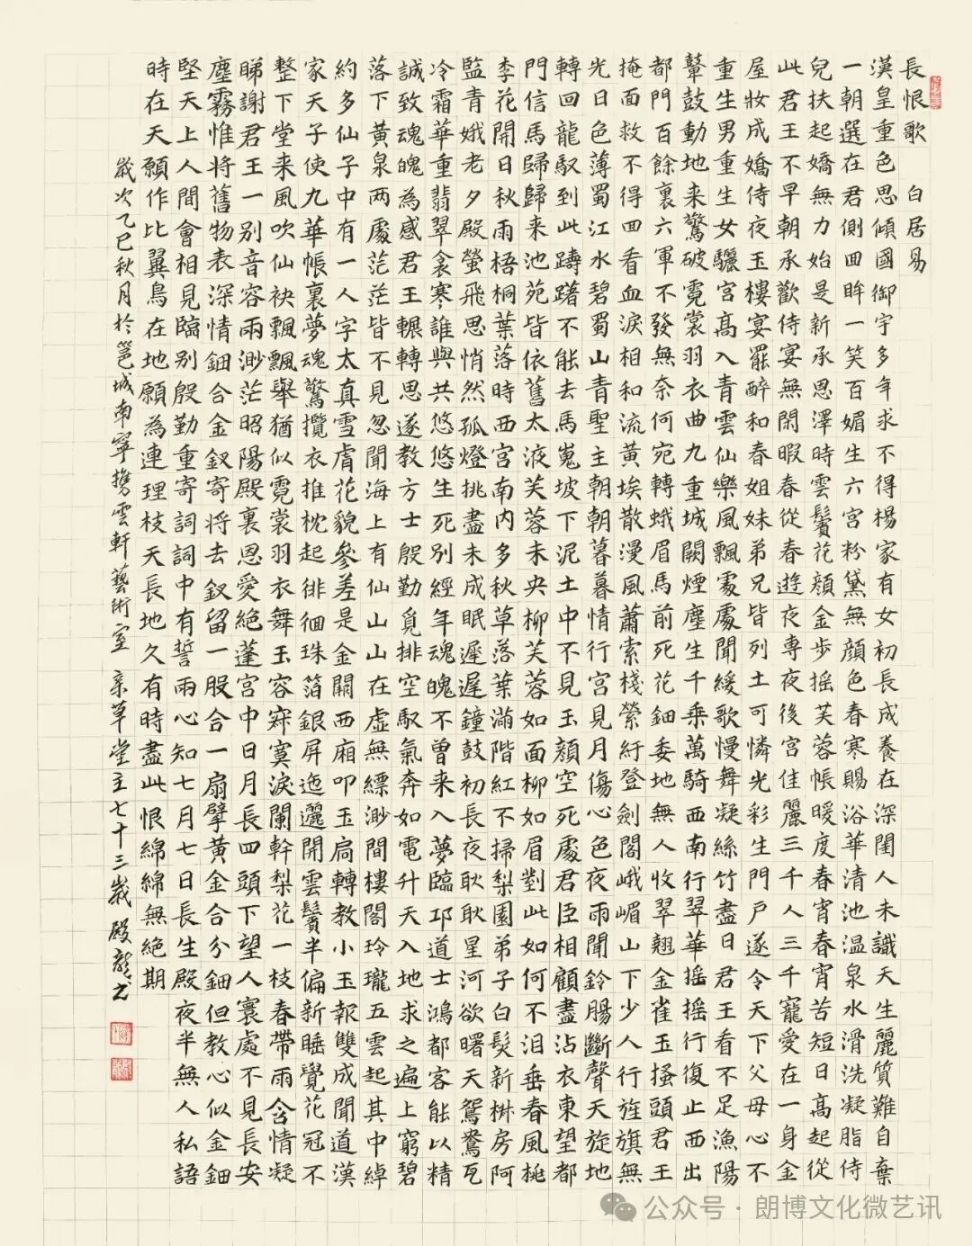 長恨歌 白居易
漢皇重色思傾國御宇多年求不得楊家有女初長成養在深閨人未識天生麗質難自棄
一朝選在君側回眸一笑百媚生六宮粉黛無顏色春寒賜浴華清池温泉水滑洗凝脂侍
兒扶起嬌無力始是新承恩澤時雲鬢花顏金步摇芙蓉帳暖度春宵春宵苦短日高起從
此君王不早朝承歡侍宴無閑暇春從春遊夜專夜後宮佳麗三千人三千寵愛在一身金
屋妝成嬌侍夜玉樓宴罷醉和春姐妹弟兄皆列土可憐光彩生門户遂令天下父母心不
重生男重生女驪宮高入青雲仙樂風飄處處聞緩歌慢舞凝絲竹盡日君王看不足漁陽
鼙鼓動地来驚破霓裳羽衣曲九重城闕煙塵生千乘萬騎西南行翠華摇摇行復止西出
都門百餘裏六軍不發無奈何宛轉蛾眉馬前死花鈿委地無人收翠翹金雀玉搔頭君王
掩面救不得回看血淚相和流黄埃散漫風蕭索棧縈紆登劍閣峨嵋山下少人行旌旗無
光日色薄蜀江水碧蜀山青聖主朝朝暮暮情行宮見月傷心色夜雨聞鈴腸斷聲天旋地
轉回龍馭到此躊躇不能去馬嵬坡下泥土中不見玉顏空死處君臣相顧盡沾衣東望都
門信馬歸歸来池苑皆依舊太液芙蓉未央柳芙蓉如面柳如眉對此如何不泪垂春風桃
李花開日秋雨梧桐葉落時西宮南内多秋草落葉滿階紅不掃梨園弟子白髮新椒房阿
監青娥老夕殿螢飛思悄然孤燈挑盡未成眠遲遲鐘鼓初長夜耿耿星河欲曙天鴛鴦瓦
冷霜華重翡翠衾寒誰與共悠悠生死别經年魂魄不曾来入夢臨邛道士鴻都客能以精
誠致魂魄為感君王輾轉思遂教方士殷勤覓排空馭氣奔如電升天入地求之遍上窮碧
落下黄泉两處茫茫皆不見忽聞海上有仙山山在虛無縹渺間樓閣玲瓏五雲起其中綽
約多仙子中有一人字太真雪膚花貌參差是金闕西廂叩玉扃轉教小玉報雙成聞道漢
家天子使九華帳裏夢魂驚攬衣推枕起徘徊珠箔銀屏迤邐開雲鬢半偏新睡覺花冠不
整下堂来風吹仙袂飄飄舉猶似霓裳羽衣舞玉容寂寞淚闌幹梨花一枝春帶雨含情凝
睇謝君王一别音容兩渺茫昭陽殿裏恩愛絶蓬宮中日月長回頭下望人寰處不見長安
塵霧惟將舊物表深情鈿合金釵寄將去釵留一股合一扇擘黄金合分鈿但教心似金鈿
堅天上人間會相見臨别殷勤重寄詞詞中有誓兩心知七月七日長生殿夜半無人私語
時在天願作比翼鳥在地願為連理枝天長地久有時盡此恨綿綿無絶期
歲次乙巳秋月於邕城南寧攜雲軒藝術室 亲草堂主七十三歲 殿龍书
公众号·朗博文化微艺讯